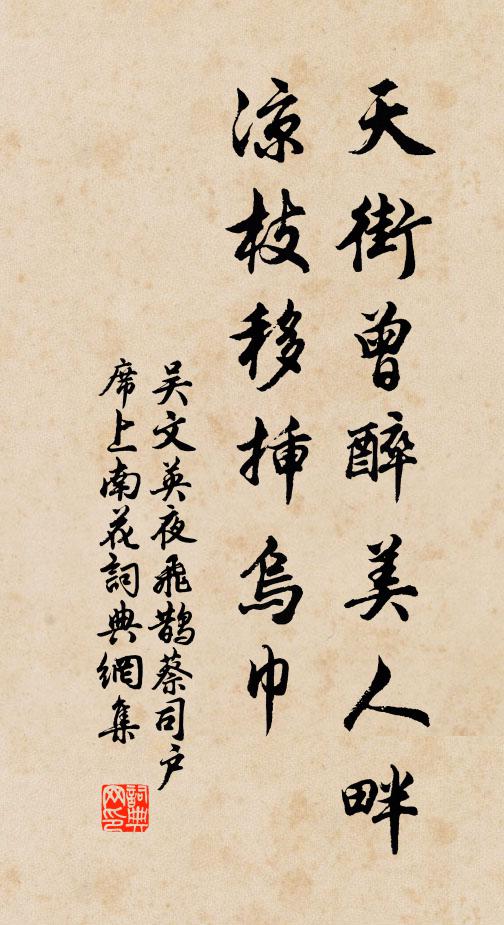 天街曾醉美人畔
涼枝移插烏巾
吴文英夜飛鵲蔡司户
席上南花詞典網集
詞典网印